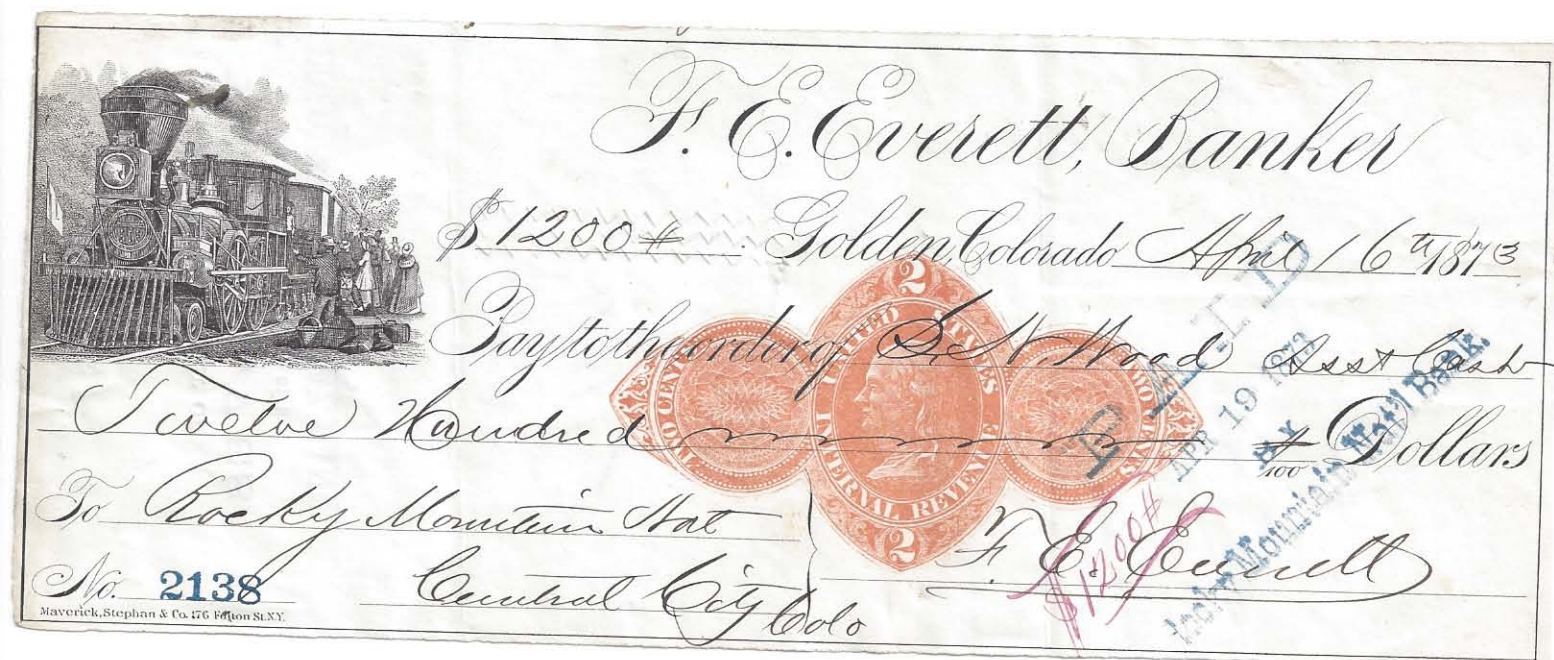 F. E. Everett, Banker
$1200# Golden, Colorado April 16th 1873
Pay to the order of S. N Wood Asst Cash
Twelve Hundred #/100 Dollars
To Rocky Mountain Nat
F. E. Everett
No. 2138 Central City Colo
Maverick, Stephan & Co. 176 Fulton St. N.Y.
2
UNITED STATES
INTERNAL REVENUE
TWO CENTS
TWO CENTS
2
PAID
APR 19 1873
BY
Rocky Mountain Nat'l Bank.
$1200#